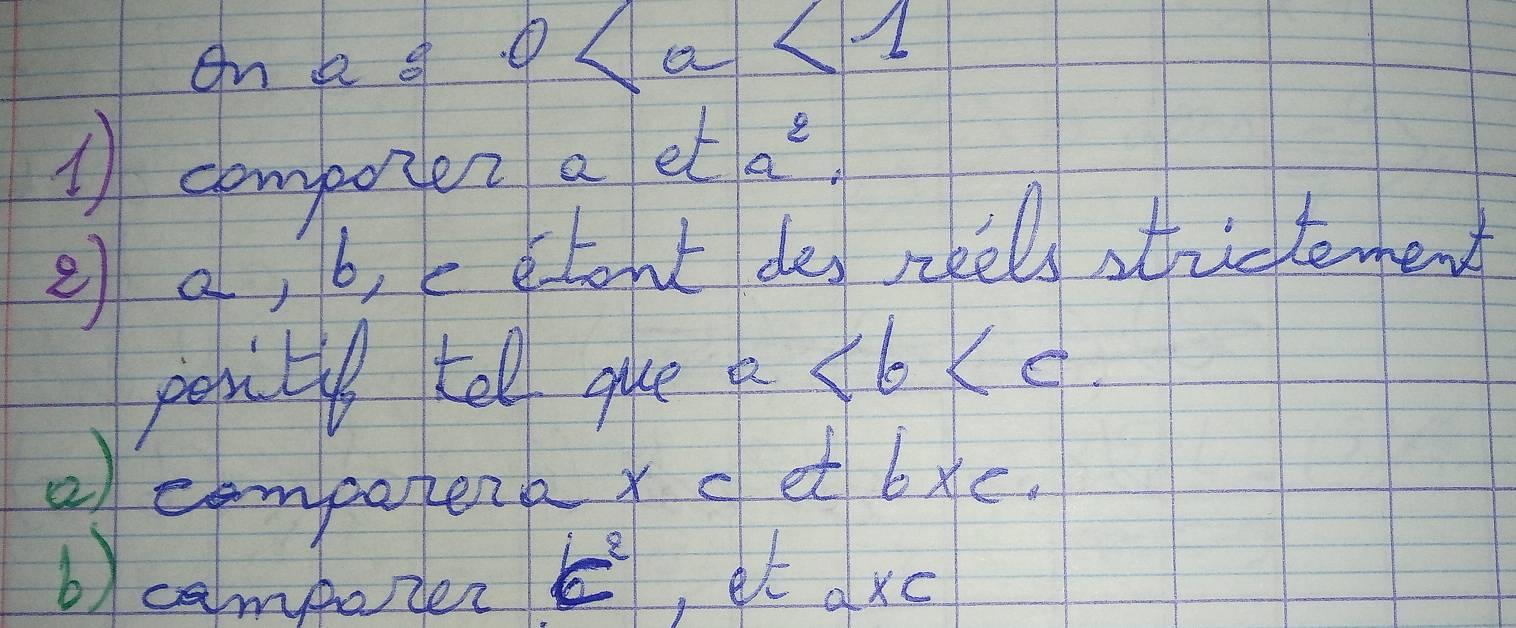 On a : 0 < a < 1
1) comparer a et a².
2) a, b, c étant des réels strictement
positif tel que a < b < c.
a) comparer a x c et b x c.
b) comparer c², et a x c